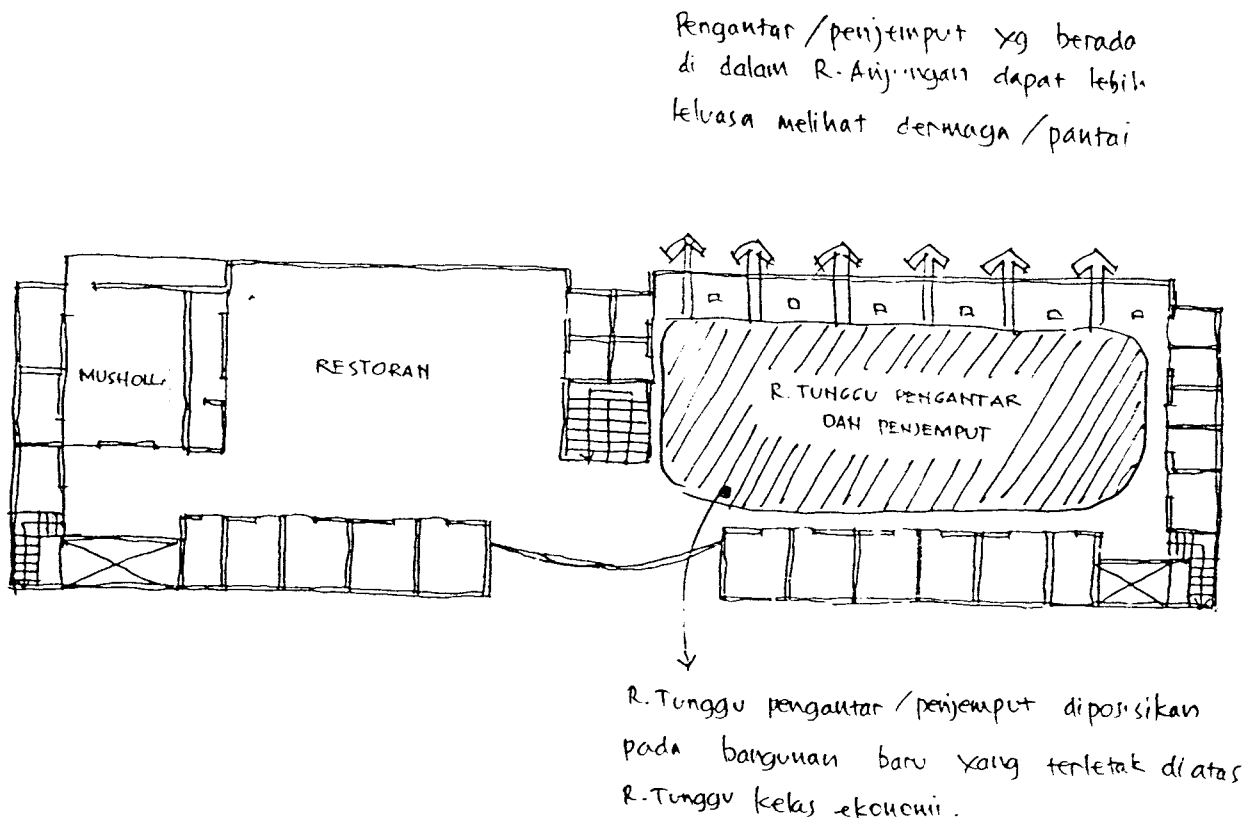 Pengantar / penjemput yg berada
di dalam R. Anjungan dapat lebih
leluasa melihat dermaga / pantai
MUSHOLL
RESTORAN
R. TUNGGU PENGANTAR
DAN PENJEMPUT
R. Tunggu pengantar / penjemput diposisikan
pada bangunan baru yang terletak diatas
R. Tunggu kelas ekonomi.